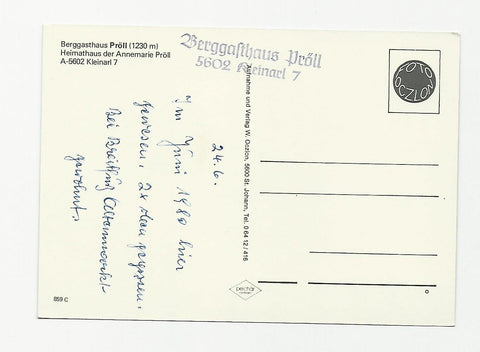 Berggasthaus Pröll (1230 m)
Heimathaus der Annemarie Pröll
A-5602 Kleinarl 7
Berggasthaus Pröll
5602 Kleinarl 7
FOTO
OCZLON
24.6.
Im Juni 1980 hier
gewesen. 2x
Bei
gewohnt.
Aufnahme und Verlag W. Oczlon, 5600 St. Johann, Tel. 0 64 12 / 416
859 C